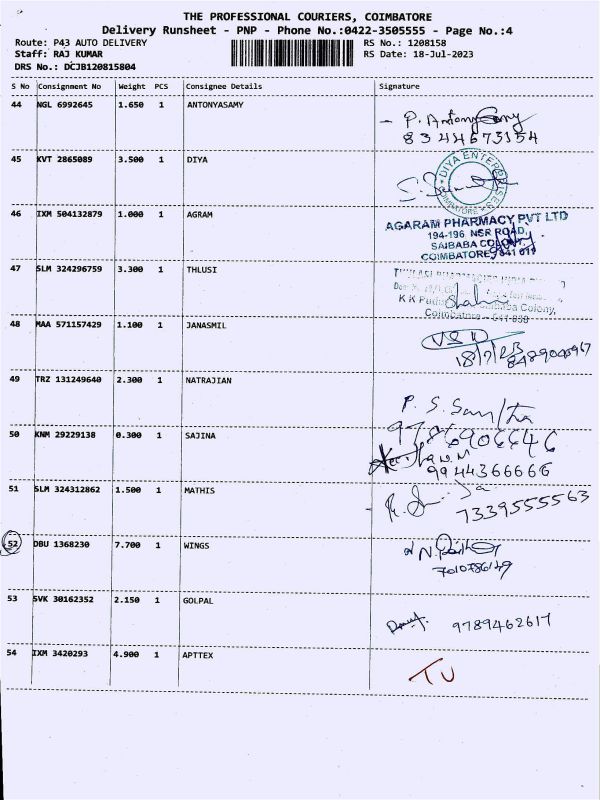 THE PROFESSIONAL COURIERS, COIMBATORE
Delivery Runsheet - PNP - Phone No.:0422-3505555 - Page No.:4
Route: P43 AUTO DELIVERY RS No.: 1208158
Staff: RAJ KUMAR RS Date: 18-Jul-2023
DRS No.: DCJB120815804
S No Consignment No Weight PCS Consignee Details Signature
44 NGL 6992645 1.650 1 ANTONYASAMY
- P. Antony Samy
8344673154
45 KVT 2865089 3.500 1 DIYA
DIYA ENTERPRISES
COIMBATORE
46 IXM 504132879 1.000 1 AGRAM
AGARAM PHARMACY PVT LTD
194-196 NSR ROAD,
SAIBABA COLONY,
COIMBATORE, 641 011
47 SLM 324296759 3.300 1 THLUSI
Colony,
Coimbatore - 641 038
48 MAA 571157429 1.100 1 JANASMIL
18/7/23
49 TRZ 131249640 2.300 1 NATRAJIAN
P. S. Santha
9786906646
50 KNM 29229138 0.300 1 SAJINA
9944366666
51 SLM 324312862 1.500 1 MATHIS
7339555563
52 DBU 1368230 7.700 1 WINGS
7010786149
53 SVK 30162352 2.150 1 GOLPAL
9789462617
54 IXM 3420293 4.900 1 APTTEX
TU